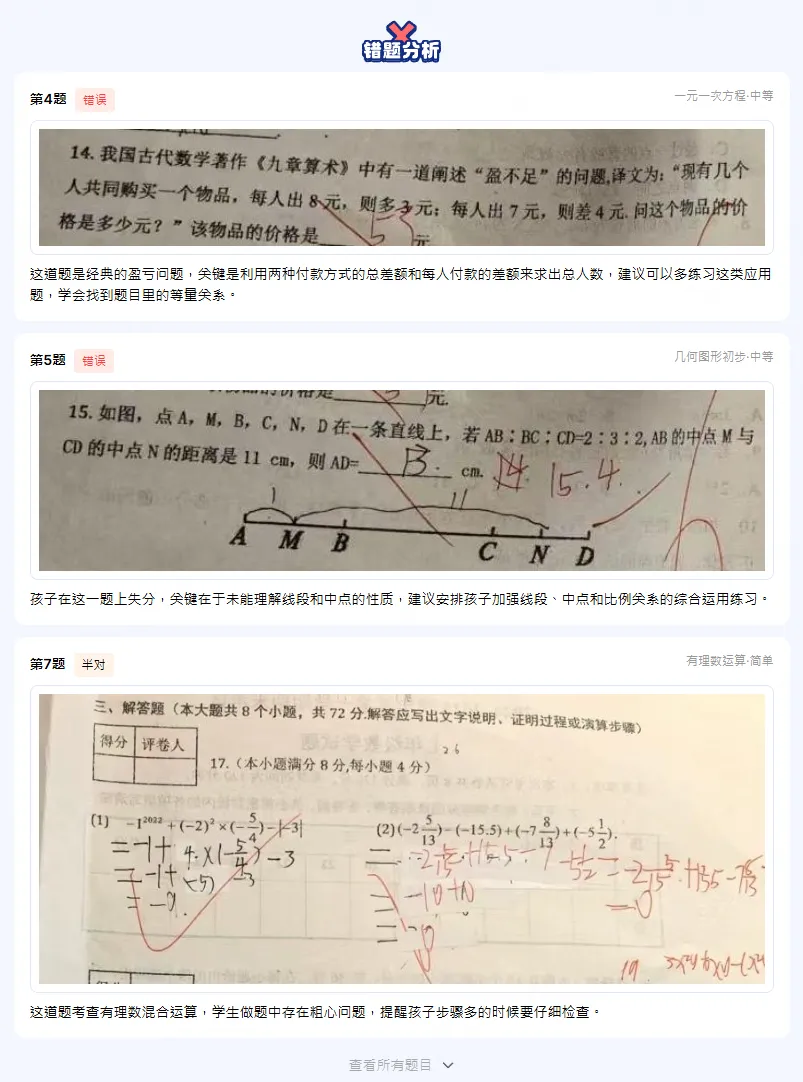 错题分析
第4题 错误 一元一次方程·中等
14. 我国古代数学著作《九章算术》中有一道阐述“盈不足”的问题,译文为:“现有几个
人共同购买一个物品，每人出 8 元，则多 3 元；每人出 7 元，则差 4 元. 问这个物品的价
格是多少元？”该物品的价格是 53 元
这道题是经典的盈亏问题，关键是利用两种付款方式的总差额和每人付款的差额来求出总人数，建议可以多练习这类应用
题，学会找到题目里的等量关系。
第5题 错误 几何图形初步·中等
15. 如图，点 A，M，B，C，N，D 在一条直线上，若 AB∶BC∶CD=2∶3∶2, AB 的中点 M 与
CD 的中点 N 的距离是 11 cm，则 AD= 13. cm. 14 15.4.
1 11
A M B C N D
孩子在这一题上失分，关键在于未能理解线段和中点的性质，建议安排孩子加强线段、中点和比例关系的综合运用练习。
第7题 半对 有理数运算·简单
三、解答题（本大题共 8 个小题，共 72 分.解答应写出文字说明、证明过程或演算步骤）
得分 评卷人
26
17.（本小题满分 8 分,每小题 4 分）
(1) -1²⁰²² + (-2)² × (-5/4) - |-3|
(2) (-2 5/13) - (-15.5) + (-7 8/13) + (-5 1/2).
= -1 + 4 × (-5/4) - 3
= -1 + (-5) -3
= -9.
= -10 + 10
= 0
19
这道题考查有理数混合运算，学生做题中存在粗心问题，提醒孩子步骤多的时候要仔细检查。
查看所有题目